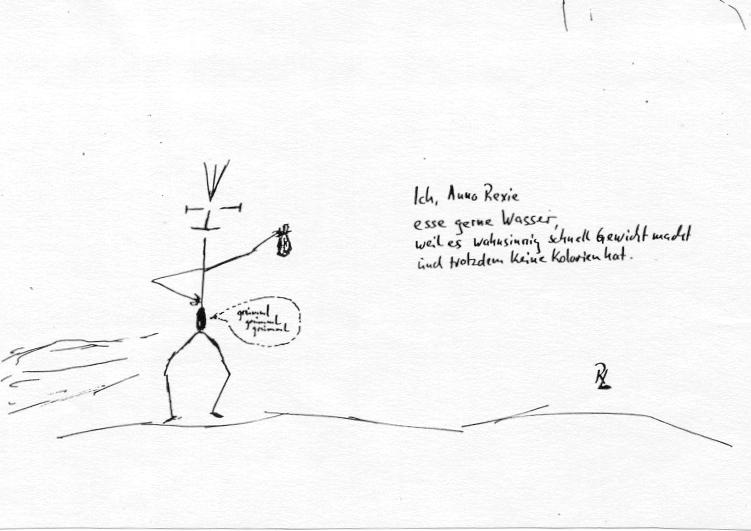 Ich, Anno Rexie
esse gerne Wasser,
weil es wahnsinnig schnell Gewicht macht
und trotzdem keine Kolorien hat.
grummel
grummel
grummel